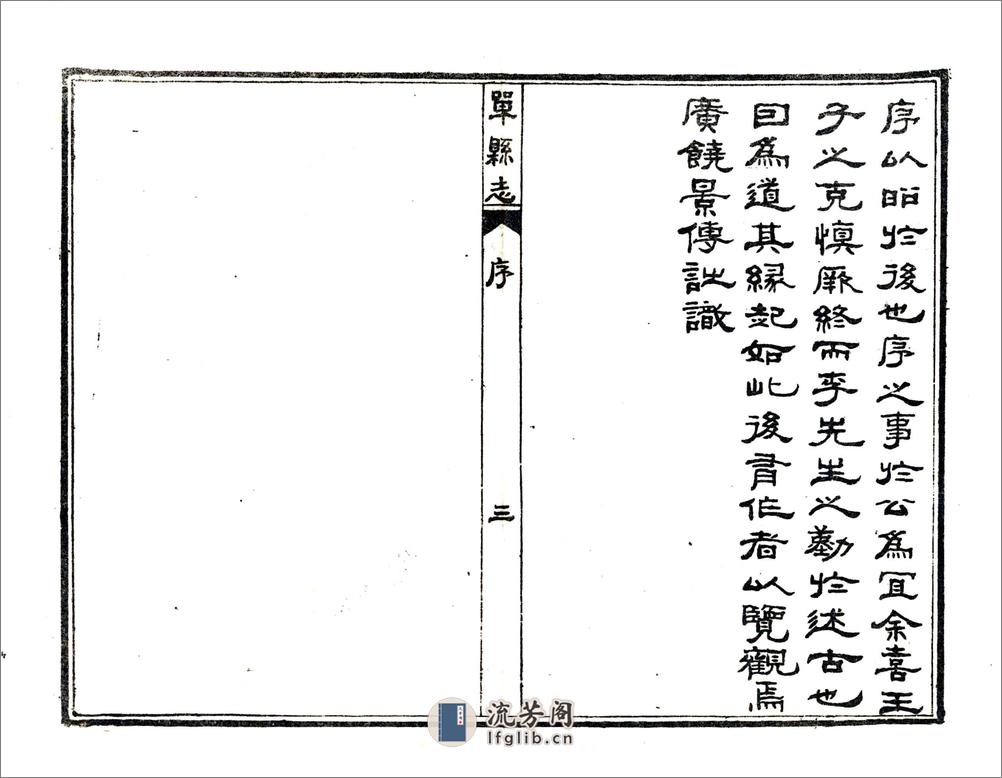 序以昭於後也序之事於公為宜余喜王
子之克慎厥終而李先生之勤於述古也
囙為道其緣起如此後有作者以覽觀焉
廣饒景傳識
單縣志
序
三
流芳阁
lfglib.cn